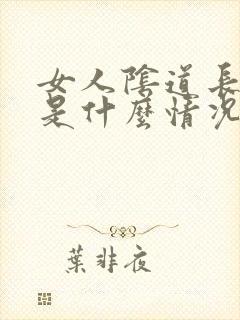 女人陰道長
是什麼情況
葉非夜